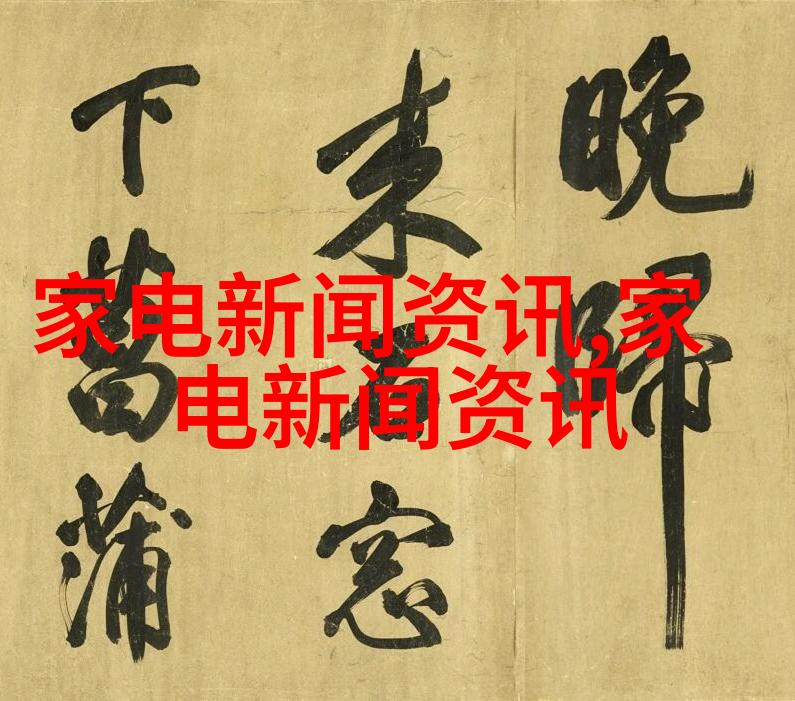 家电新闻资讯,家
电新闻资讯
晚歸
来窓
下菖蒲